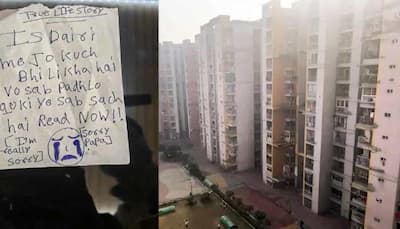 TRUE LIFE STORY
Is Dairi
me Jo kuch
Bhi Likha hai
vo sab Padhlo
quki ye sab sach
hai Read NOW!!
[I'm really sorry]
[sorry Papa]